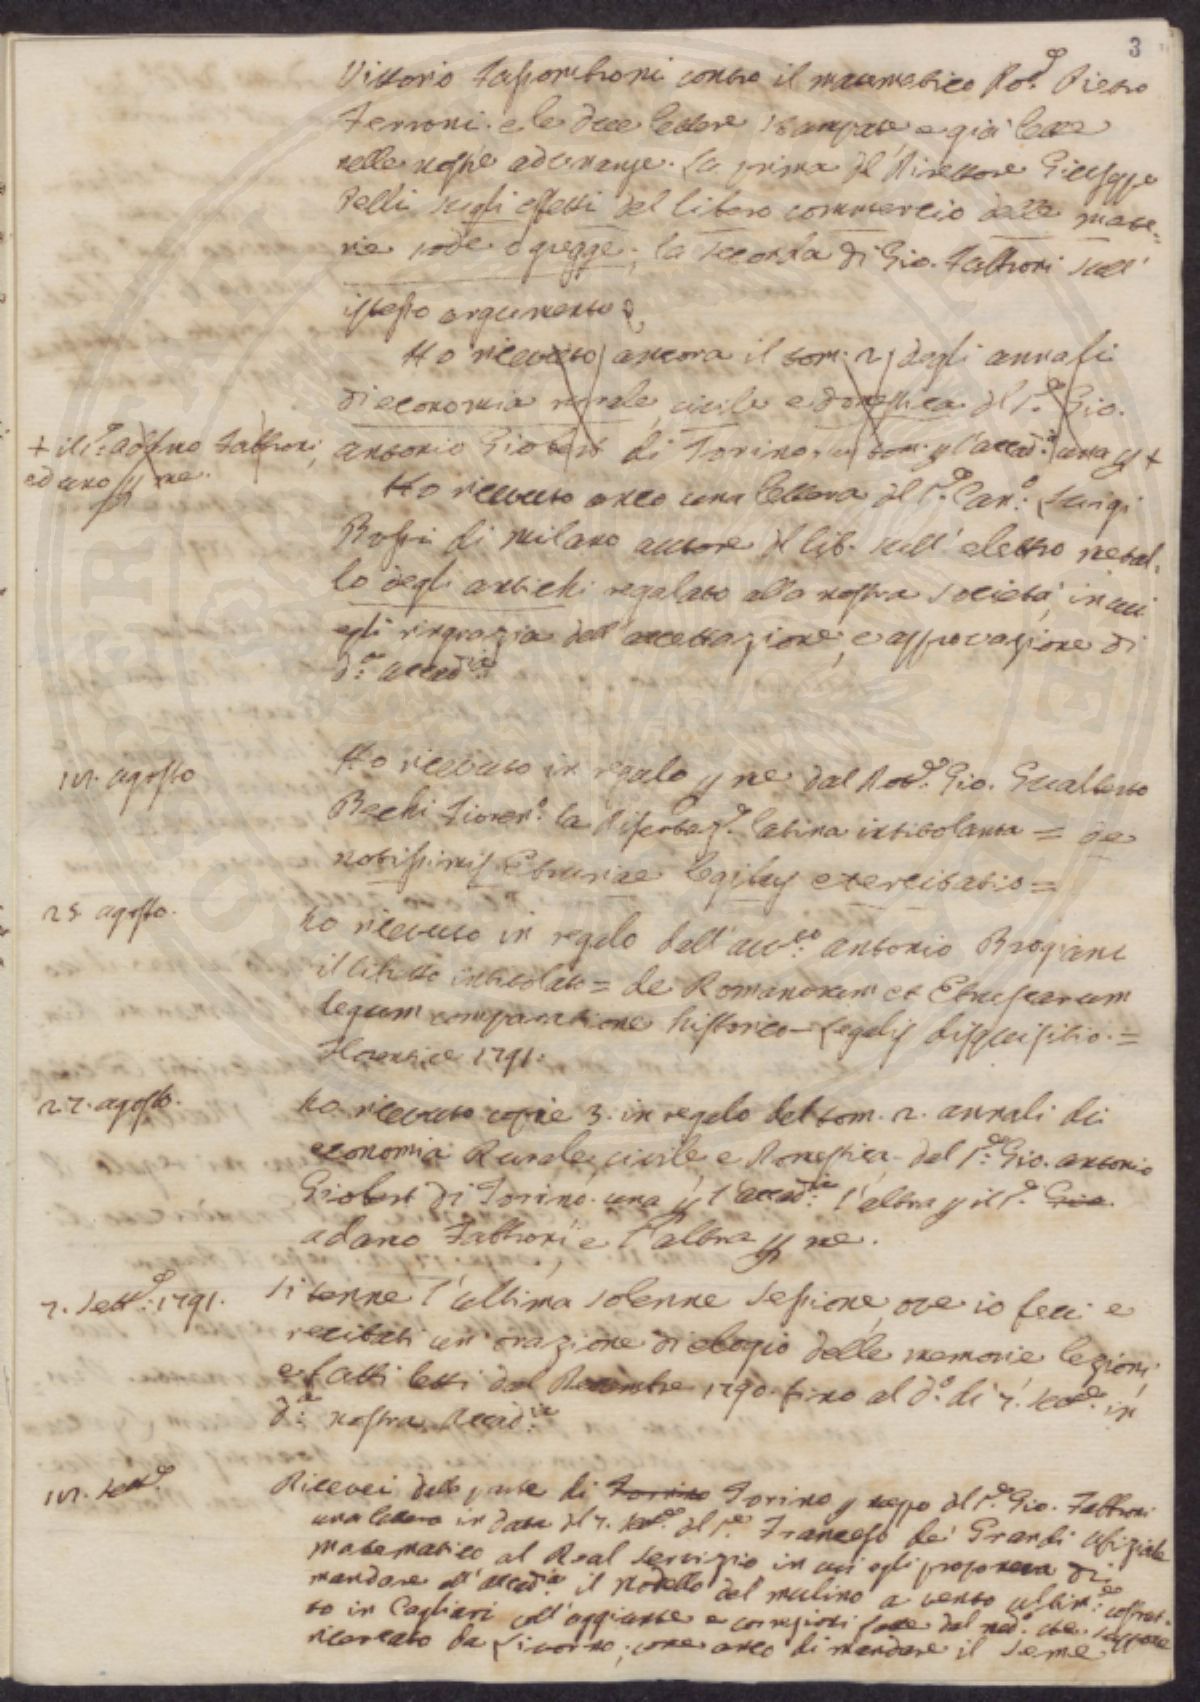 3
Vittorio Fassombroni contro il matematico Pod.e Pietro
Ferroni. e le due lettere stampate, e già lette
nelle nostre adunanze. La prima del Direttore Giuseppe
Pelli sugli effetti del libero commercio delle mate-
rie sode e gregge; la seconda di Gio. Fabbroni sull'
istesso argumento
Ho ricevuto ancora il tom. 2 degli annali
di economia rurale, civile e domestica del S.e Gio.
antonio Giobert di Torino tom. p l'accad.a una p +
+ il S.e adamo Fabbroni,
ed uno p me.
Ho ricevuto anco una lettera del S.e Can.o Luigi
Bossi di Milano autore del lib. sull' elettro metal-
lo degli antichi regalato alla nostra società, in cui
egli ringrazia dell' accettazione, e approvazione di
d.a accad.ia
10. agosto
Ho ricevuto in regalo p me dal Dott.e Gio. Gualberto
Bechi Fioren.o la Dissertaz.e latina intitolanta = de
notissimis Etruriae legibus exercitatio =
25. agosto.
ho ricevuto in regalo dall' avv.to antonio Brogiani
il libretto intitolato = de Romanorum et Etruscarum
legum comparatione historico-Legalis disquisitio. =
Florentiae 1791.
27. agosto.
ho ricevuto copie 3. in regalo del tom. 2. annali di
economia Rurale, civile e Domestica del S.e Gio. antonio
Giobert di Torino. una p l'accad.ia l'altra p il S.e Gio.
adamo Fabbroni, e l'altra p me.
7. Sett.e 1791.
Si tenne l'ultima solenne sessione, ove io feci e
recitati un' orazione di elogio delle memorie lezioni
e fatti letti dal Decembre 1790. fino al d.o di 7. Sett.e in
d.a nostra Accad.ia
10. Sett.e
Ricevei dalla parte di Torino Torino p mezo del S.e Gio. Fabbroni
una lettera in data del 7. Sett.e del S.e Francesco de' Grandi Ufiziale
matematico al Real servizio in cui egli proponeva di
mandare all' accad.ia il modello del mulino a vento ultim.e costrut-
to in Cagliari coll' aggiunte e corezioni fatte dal med.o che sappone
ricercato da Livorno; come anco di mandare il seme